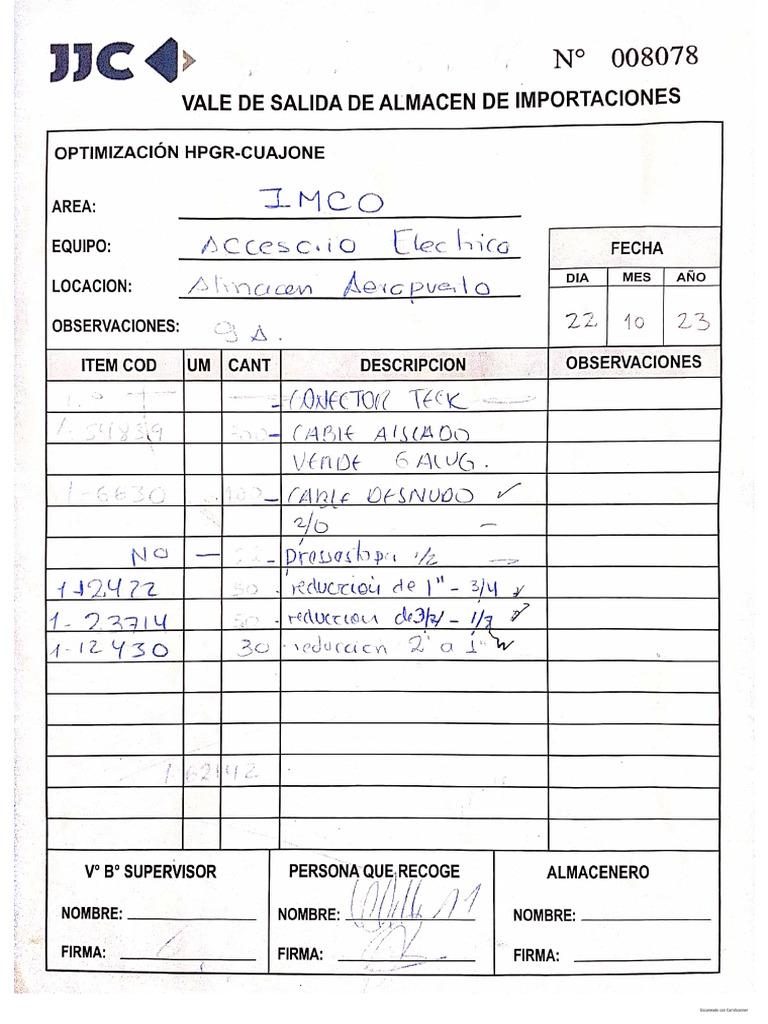 JJC
N° 008078
VALE DE SALIDA DE ALMACEN DE IMPORTACIONES
OPTIMIZACIÓN HPGR-CUAJONE
AREA: IMCO
EQUIPO: Accesorio Electrico
LOCACION: Almacen Aeropuerto
OBSERVACIONES:
FECHA
DIA MES AÑO
22 10 23
ITEM COD UM CANT DESCRIPCION OBSERVACIONES
- CONECTOR TECK
1-54839 - CABLE AISLADO
VERDE 6 ALUG.
1-6630 100 - CABLE DESNUDO ✓
2/0 -
NO - - Pressostopa 1/2
1-12422 30 reducción de 1" - 3/4
1-23714 reduccion de
1-12430 30 reduccion 2" a 1"
1-62142
V° B° SUPERVISOR PERSONA QUE RECOGE ALMACENERO
NOMBRE: NOMBRE: NOMBRE:
FIRMA: FIRMA: FIRMA:
Escaneado con CamScanner